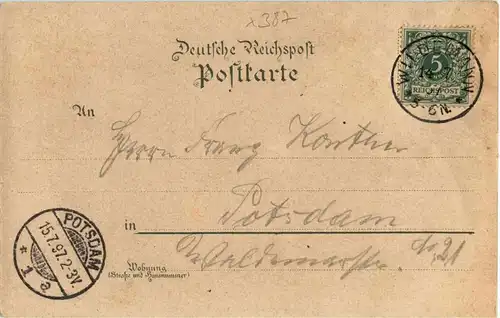 x387
Deutsche Reichspost
Postkarte
5
REICHSPOST
WILDEMANN
* 5-6N. *
An
Herrn Franz
in Potsdam
Waldemarstr. No 21
Wohnung
(Straße und Hausnummer)
POTSDAM
15.7.97.2-3V.
* 1 a